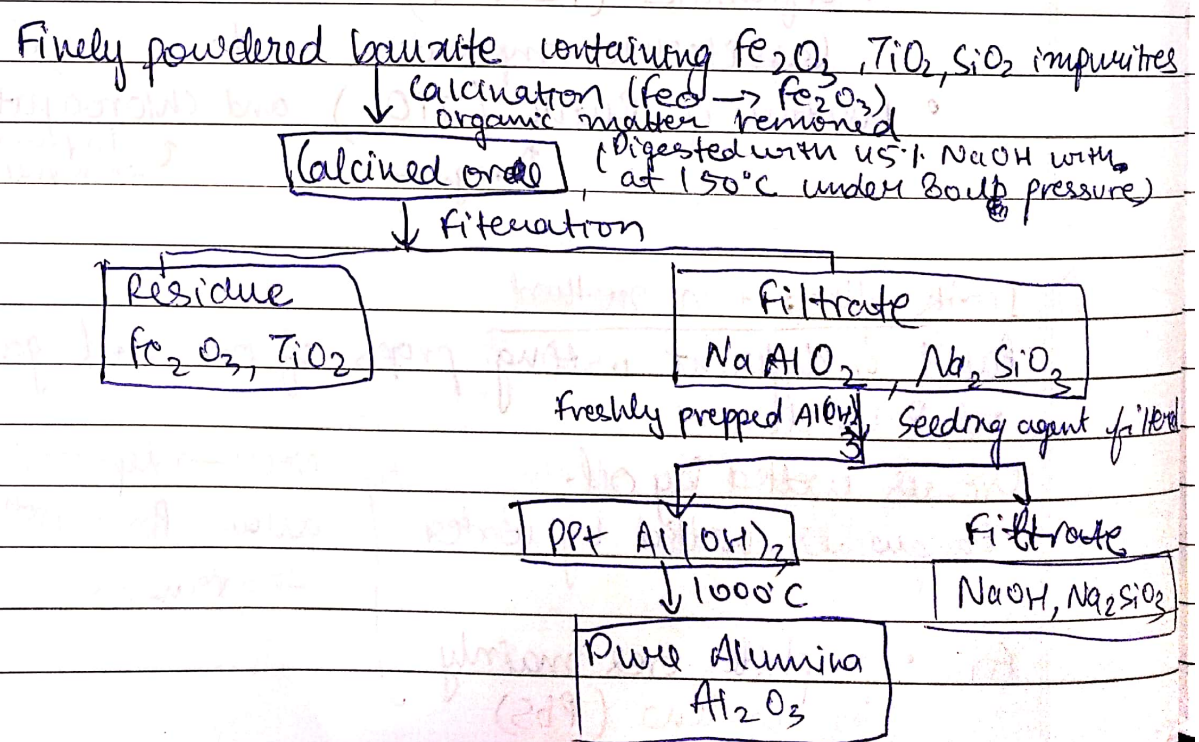 Finely powdered bauxite containing Fe2O3, TiO2, SiO2 impurities
Calcination (FeO → Fe2O3)
Organic matter removed
Calcined ore (Digested with 45% NaOH with
at 150°C under 80 pressure)
Filteration
Residue
Fe2O3, TiO2
Filtrate
NaAlO2, Na2SiO3
Freshly prepped Al(OH)3 Seeding agent filtered
PPt Al(OH)2
Filtrate
1000°C
NaOH, Na2SiO3
Pure Alumina
Al2O3